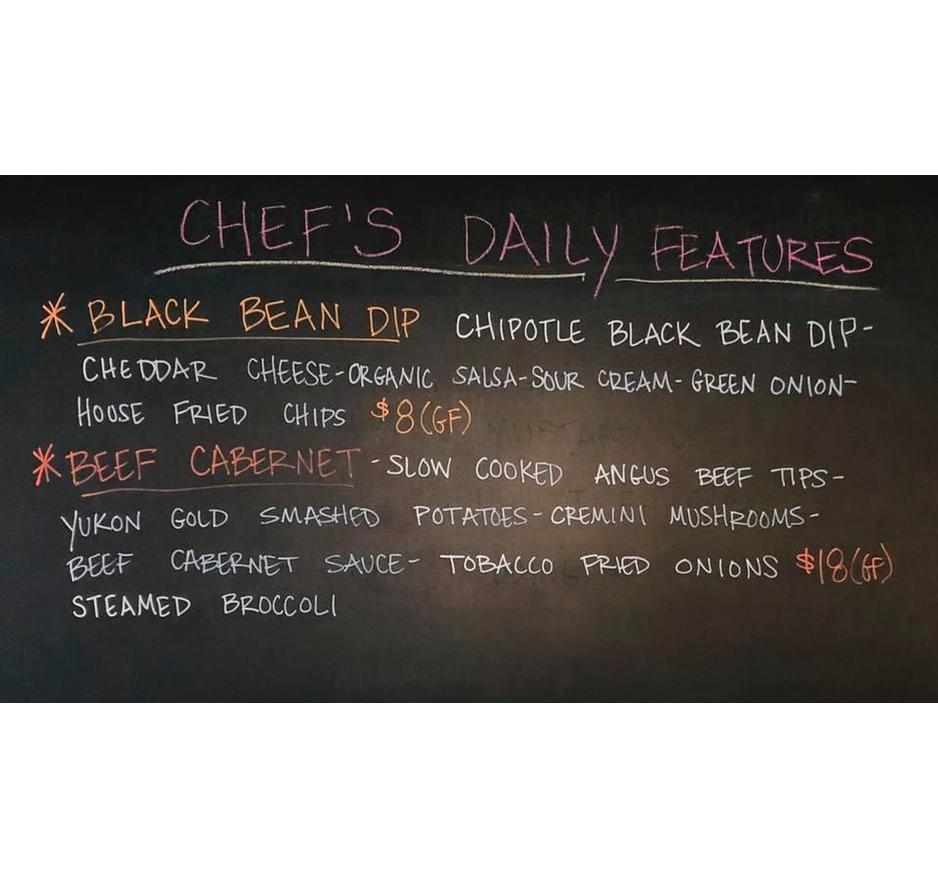 CHEF'S DAILY FEATURES
* BLACK BEAN DIP CHIPOTLE BLACK BEAN DIP-
CHEDDAR CHEESE-ORGANIC SALSA-SOUR CREAM-GREEN ONION-
HOUSE FRIED CHIPS $8(GF)
* BEEF CABERNET -SLOW COOKED ANGUS BEEF TIPS-
YUKON GOLD SMASHED POTATOES-CREMINI MUSHROOMS-
BEEF CABERNET SAUCE- TOBACCO FRIED ONIONS $18(GF)
STEAMED BROCCOLI